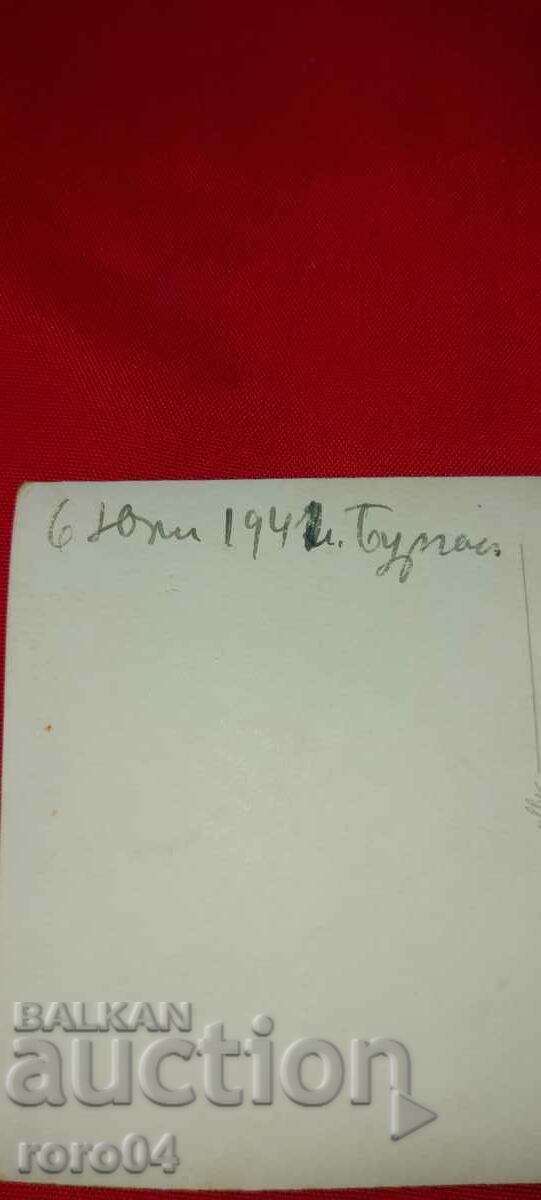 6 Юли 1941г. Бургас.
BALKAN
auction
roro04